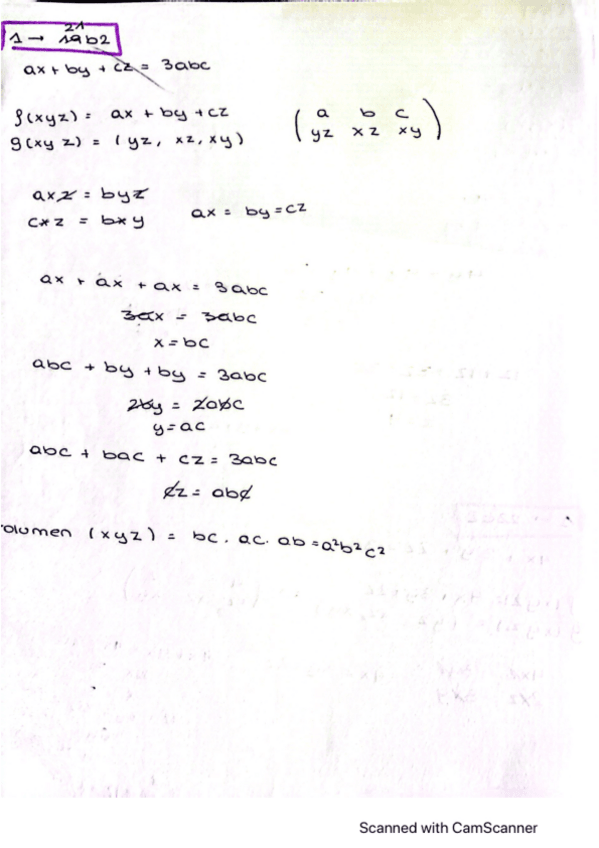 21
1 → 1ab2
ax + by + cz = 3abc
f(xyz) = ax + by + cz
g(xyz) = (yz, xz, xy)
( a b c
yz xz xy )
axz = byz
cxz = bxy
ax = by = cz
ax + ax + ax = 3abc
3ax = 3abc
x = bc
abc + by + by = 3abc
2by = 2abc
y = ac
abc + bac + cz = 3abc
cz = abc
olumen (xyz) = bc · ac · ab = a²b²c²
Scanned with CamScanner